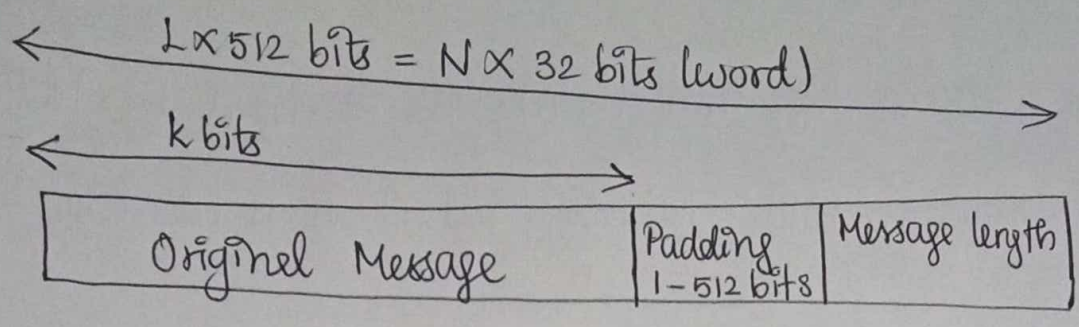 L × 512 bits = N × 32 bits (word)
k bits
Original Message
Padding
1-512 bits
Message length